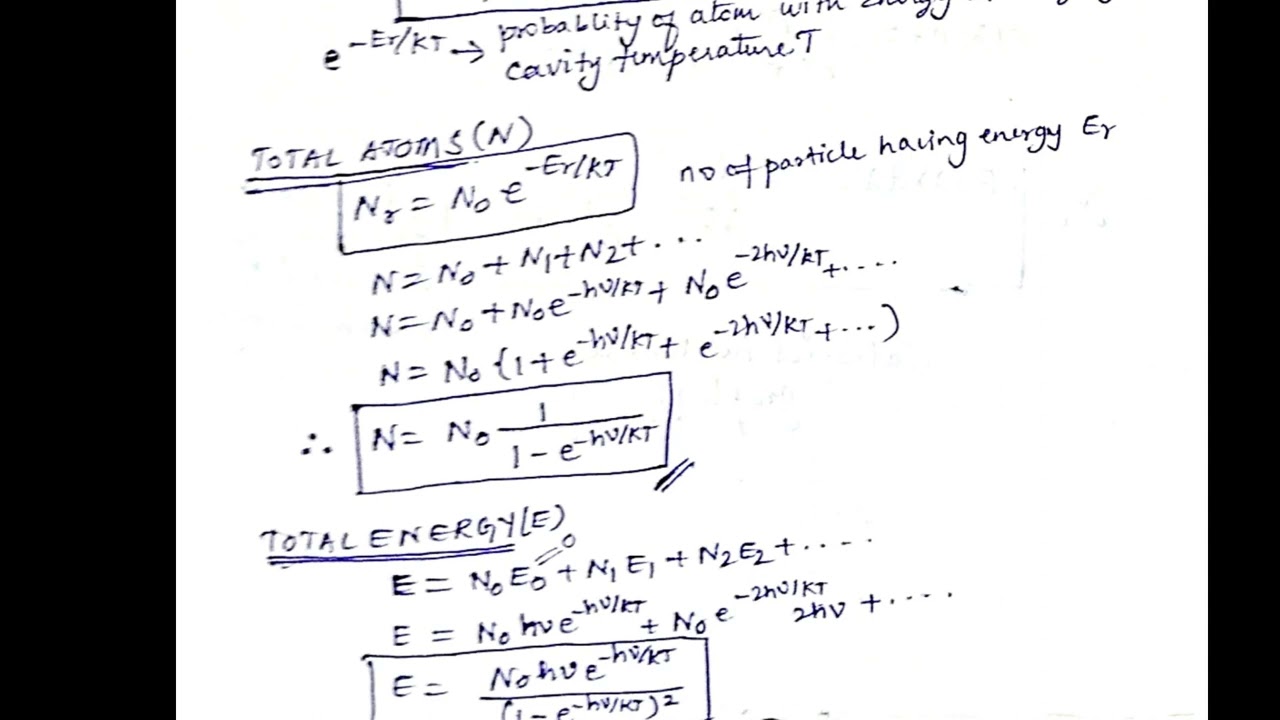 e^-Er/KT → probablity of atom with energy
cavity temperature T
TOTAL ATOMS (N)
Nr = N0 e^-Er/KT no of particle having energy Er
N = N0 + N1 + N2 + ...
N = N0 + N0 e^-hν/KT + N0 e^-2hν/KT + ....
N = N0 {1 + e^-hν/KT + e^-2hν/KT + ...)
∴ N = N0 1/(1 - e^-hν/KT)
TOTAL ENERGY (E)
E = N0 E0 = 0 + N1 E1 + N2 E2 + ....
E = N0 hν e^-hν/KT + N0 e^-2hν/KT 2hν + ....
E = N0 hν e^-hν/KT/(1 - e^-hν/KT)^2